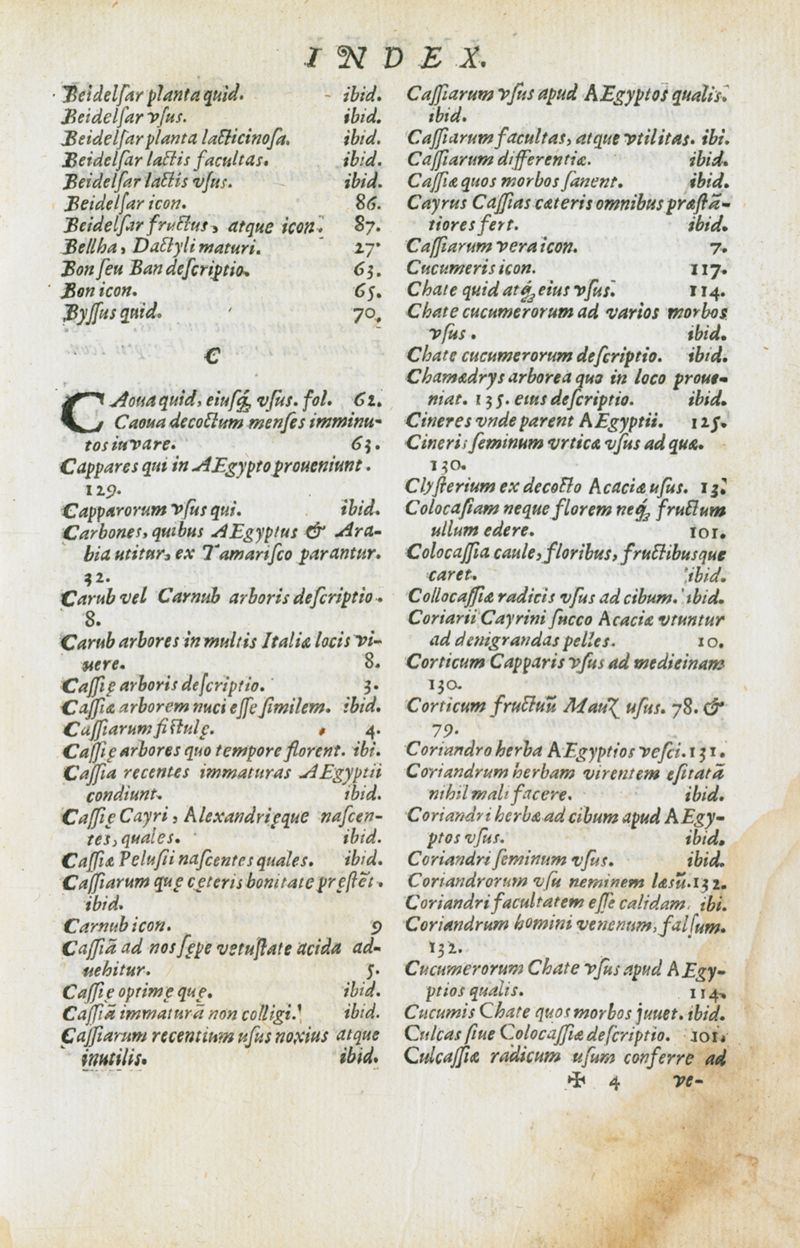 INDEX.
Beidelſar planta quid. ibid.
Beidelſar vſus. ibid.
Beidelſar planta lacticinoſa. ibid.
Beidelſar lactis facultas. ibid.
Beidelſar lactis vſus. ibid.
Beidelſar icon. 86.
Beidelſar fructus, atque icon. 87.
Bellha, Dactyli maturi. 27.
Bon ſeu Ban deſcriptio. 63.
Bon icon. 65.
Byſſus quid. 70.
C
CAoua quid, eiuſq́; vſus. fol. 62.
Caoua decoctum menſes imminu-
tos iuvare. 63.
Cappares qui in AEgypto proueniunt.
129.
Capparorum vſus qui. ibid.
Carbones, quibus AEgyptus & Ara-
bia utitur, ex Tamariſco parantur.
32.
Carub vel Carnub arboris deſcriptio.
8.
Carub arbores in multis Italiæ locis vi-
uere. 8.
Caſſię arboris deſcriptio. 3.
Caſſiæ arborem nuci eſſe ſimilem. ibid.
Caſſiarum fiſtulę. 4.
Caſſię arbores quo tempore florent. ibi.
Caſſia recentes immaturas AEgyptii
condiunt. ibid.
Caſſię Cayri, Alexandrięque naſcen-
tes, quales. ibid.
Caſſiæ Peluſii naſcentes quales. ibid.
Caſſiarum quę cęteris bonitate pręſtēt.
ibid.
Carnub icon. 9
Caſſiā ad nos ſępe vetuſtate acida ad-
uehitur. 5.
Caſſię optimę quę. ibid.
Caſſiā immaturā non colligi. ibid.
Caſſiarum recentium uſus noxius atque
inutilis. ibid.
Caſſiarum vſus apud AEgyptos qualis.
ibid.
Caſſiarum facultas, atque vtilitas. ibi.
Caſſiarum differentiæ. ibid.
Caſſiæ quos morbos ſanent. ibid.
Cayrus Caſſias cæteris omnibus præſtā-
tiores fert. ibid.
Caſſiarum vera icon. 7.
Cucumeris icon. 117.
Chate quid atq́; eius vſus. 114.
Chate cucumerorum ad varios morbos
vſus. ibid.
Chate cucumerorum deſcriptio. ibid.
Chamædrys arborea quo in loco proue-
niat. 135. eius deſcriptio. ibid.
Cineres vnde parent AEgyptii. 125.
Cineris ſeminum vrticæ vſus ad quæ.
130.
Clyſterium ex decocto Acaciæ uſus. 13.
Colocaſiam neque florem neq́; fructum
ullum edere. 101.
Colocaſſia caule, floribus, fructibusque
caret. ibid.
Collocaſſiæ radicis vſus ad cibum. ibid.
Coriarii Cayrini ſucco Acaciæ vtuntur
ad denigrandas pelles. 10.
Corticum Capparis vſus ad medieinam
130.
Corticum fructuū Mauz uſus. 78. &
79.
Coriandro herba AEgyptios veſci. 131.
Coriandrum herbam virentem eſitatā
nihil mali facere. ibid.
Coriandri herbæ ad cibum apud AEgy-
ptos vſus. ibid.
Coriandri ſeminum vſus. ibid.
Coriandrorum vſu neminem læsū. 132.
Coriandri facultatem eſſe calidam. ibi.
Coriandrum homini venenum, falſum.
132.
Cucumerorum Chate vſus apud AEgy-
ptios qualis. 114.
Cucumis Chate quos morbos juuet. ibid.
Culcas ſiue Colocaſſiæ deſcriptio. 101.
Culcaſſiæ radicum uſum conferre ad
✠ 4 ve-